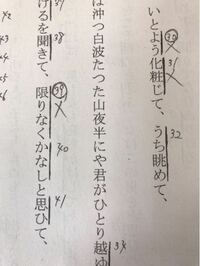 いとよう化粧じて、うち眺めて、
は沖つ白波たつた山夜半にや君がひとり越ゆ
けるを聞きて、限りなくかなしと思ひて、
30
31
32
34
37
38
39
40
41
42
43
44